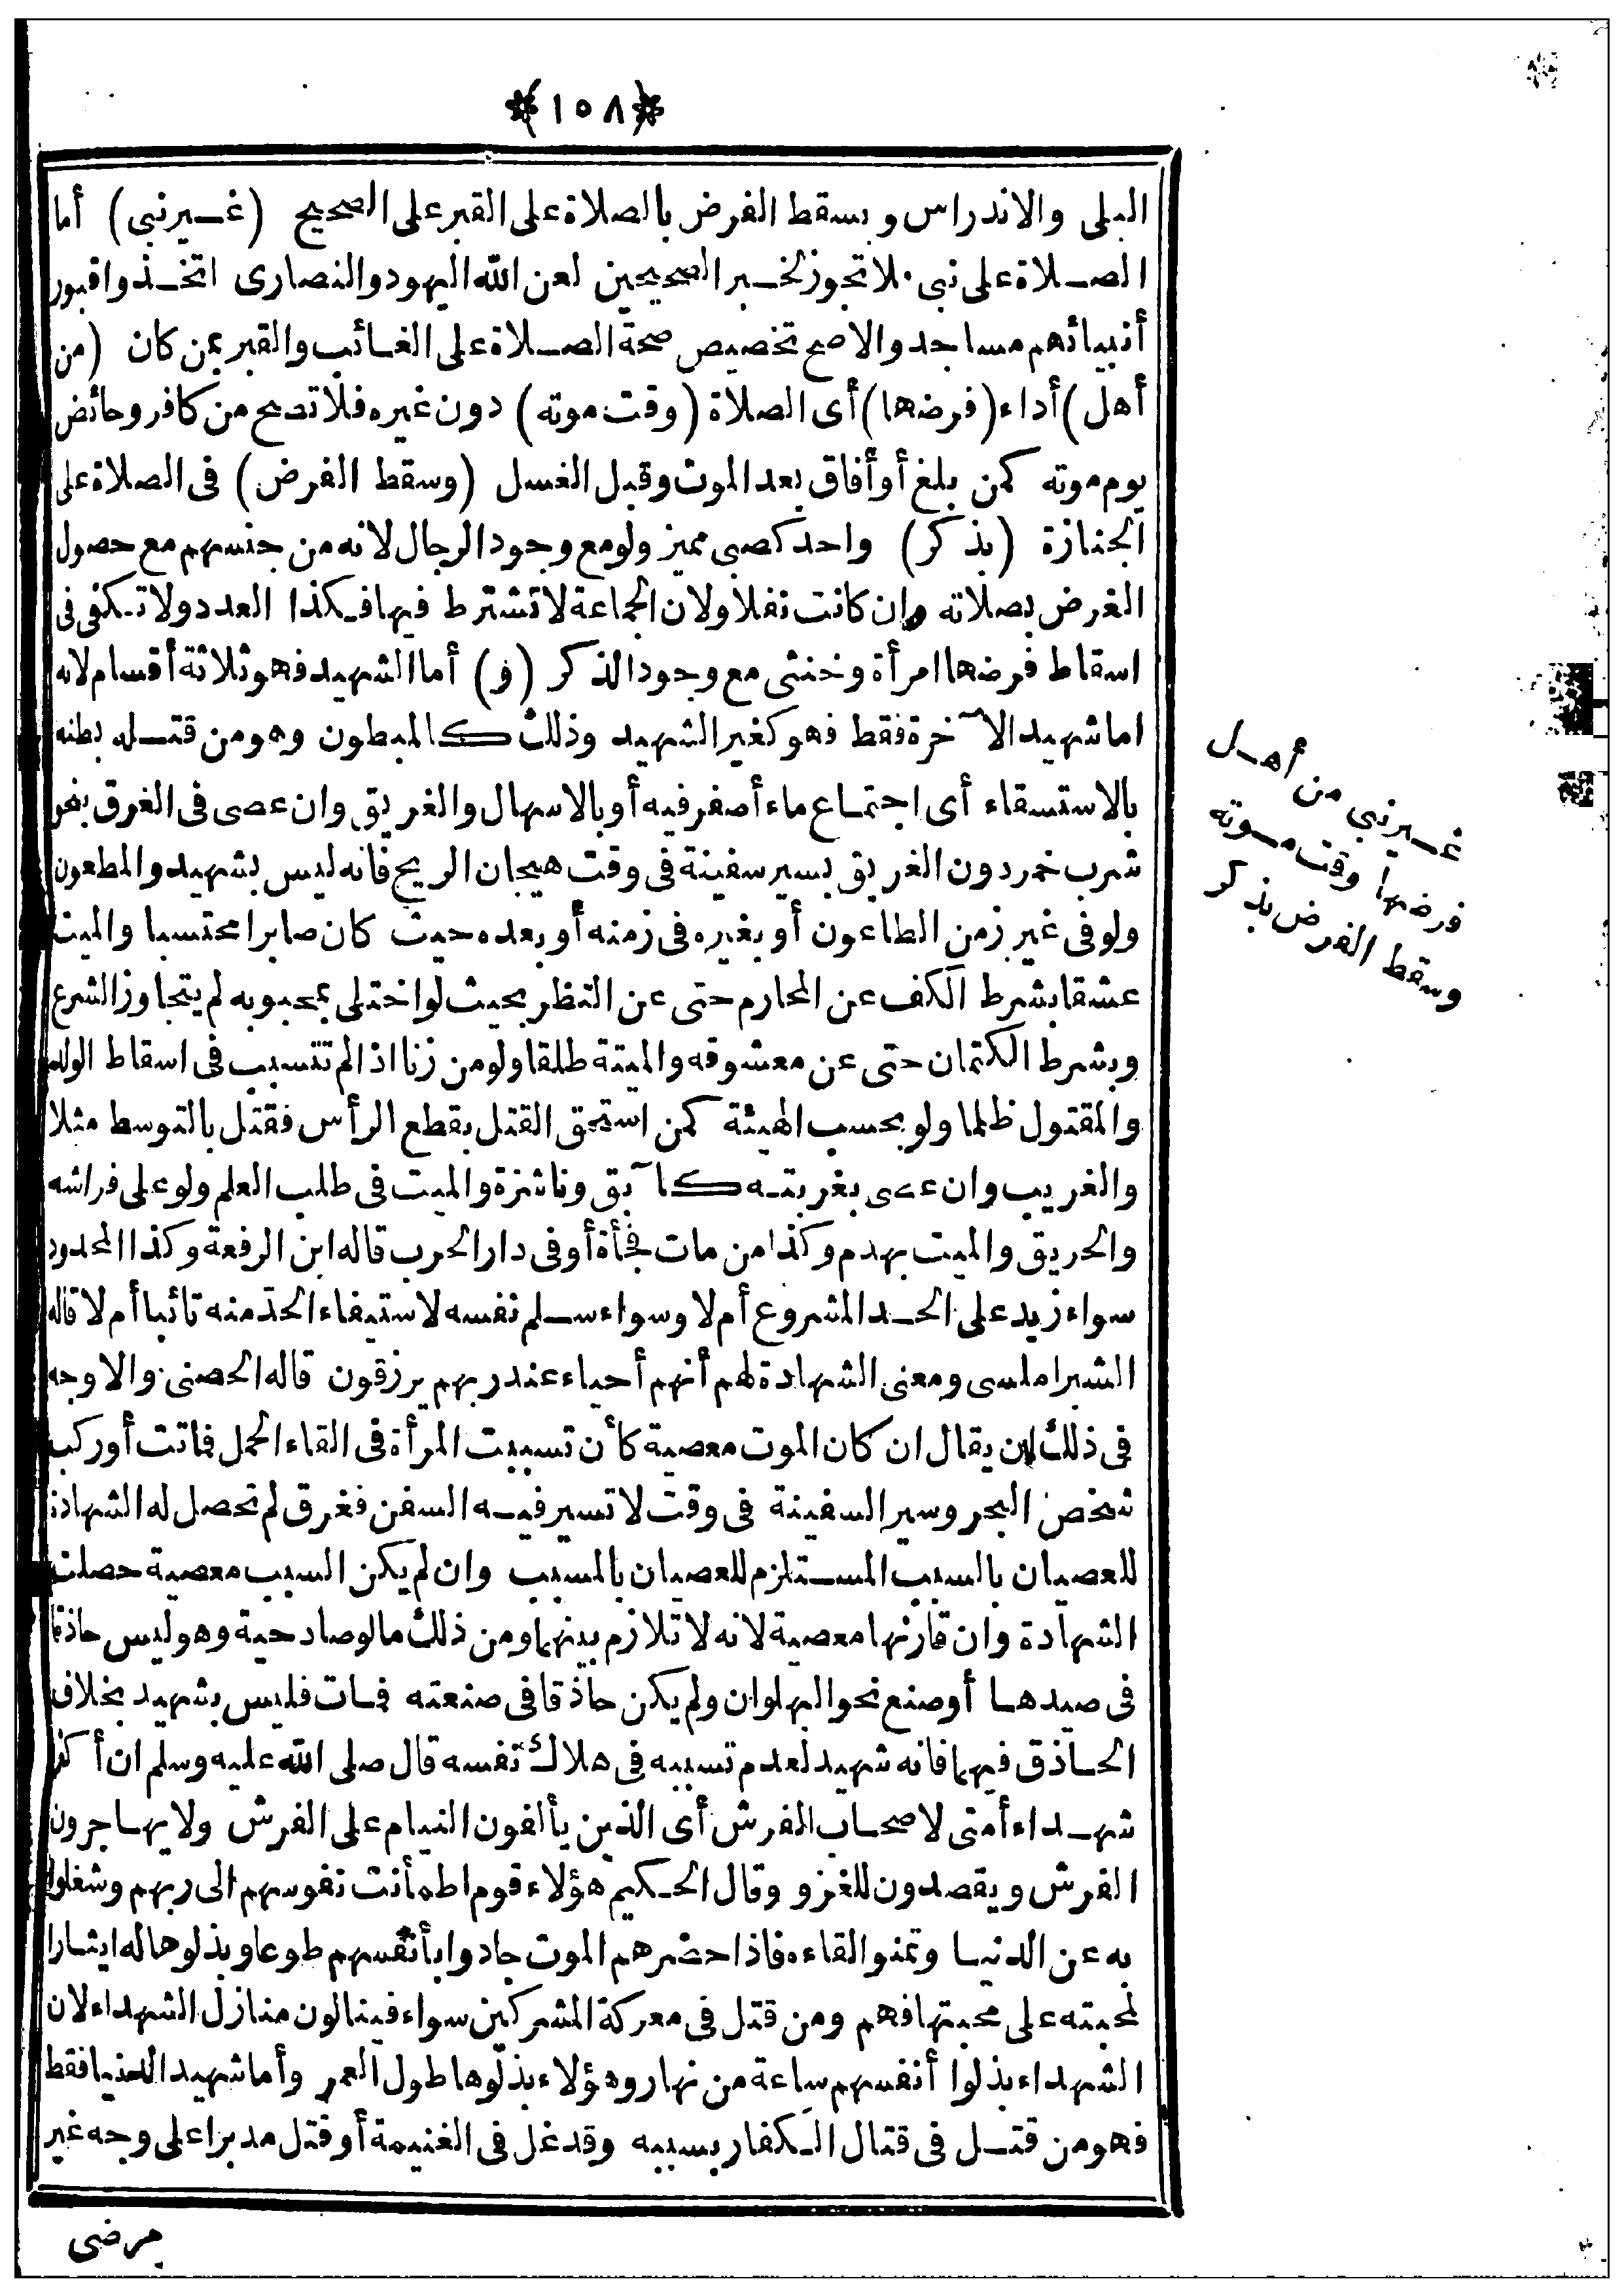 ﴿١٥٨﴾
البلى والاندراس ويسقط الفرض بالصلاة على القبر على الصحيح (غير نبى) أما
الصلاة على نبى فلا تجوز لخبر الصحيحين لعن الله اليهود والنصارى اتخذوا قبور
أنبيائهم مساجد والاصح تخصيص صحة الصلاة على الغائب والقبر بمن كان (من
أهل) أداء (فرضها) أى الصلاة (وقت موته) دون غيره فلا تصح من كافر وحائض
يوم موته كمن بلغ أو أفاق بعد الموت وقبل الغسل (وسقط الفرض) فى الصلاة على
الجنازة (بذكر) واحد كصبى مميز ولو مع وجود الرجال لانه من جنسهم مع حصول
الغرض بصلاته وان كانت نفلا ولان الجماعة لا تشترط فيها فكذا العدد ولا تكفى فى
اسقاط فرضها امرأة وخنثى مع وجود الذكر (و) أما الشهيد فهو ثلاثة أقسام لانه
اما شهيد الآخرة فقط فهو كغير الشهيد وذلك كالمبطون وهو من قتله بطنه
بالاستسقاء أى اجتماع ماء أصفر فيه أو بالاسهال والغريق وان عصى فى الغرق بنحو
شرب خمر دون الغريق بسير سفينة فى وقت هيجان الريح فانه ليس بشهيد والمطعون
ولو فى غير زمن الطاعون أو بغيره فى زمنه أو بعده حيث كان صابرا محتسبا والميت
عشقا بشرط الكف عن المحارم حتى عن النظر بحيث لو اختلى بمحبوبه لم يتجاوز الشرع
وبشرط الكتمان حتى عن معشوقه والميتة طلقا ولو من زنا اذا لم تتسبب فى اسقاط الولد
والمقتول ظلما ولو بحسب الهيئة كمن استحق القتل بقطع الرأس فقتل بالتوسط مثلا
والغريب وان عصى بغربته كآبق وناشزة والميت فى طلب العلم ولو على فراشه
والحريق والميت بهدم وكذا من مات فجأة أو فى دار الحرب قاله ابن الرفعة وكذا المحدود
سواء زيد على الحد المشروع أم لا وسواء سلم نفسه لاستيفاء الحد منه تائبا أم لا قاله
الشبراملسى ومعنى الشهادة لهم أنهم أحياء عند ربهم يرزقون قاله الحصنى والاوجه
فى ذلك أن يقال ان كان الموت معصية كأن تسببت المرأة فى القاء الحمل فماتت أو ركب
شخص البحر وسير السفينة فى وقت لا تسير فيه السفن فغرق لم تحصل له الشهادة
للعصيان بالسبب المستلزم للعصيان بالمسبب وان لم يكن السبب معصية حصلت
الشهادة وان قارنها معصية لانه لا تلازم بينهما ومن ذلك ما لو صاد حية وهو ليس حاذقا
فى صيدها أو صنع نحو البهلوان ولم يكن حاذقا فى صنعته فمات فليس بشهيد بخلاف
الحاذق فيهما فانه شهيد لعدم تسببه فى هلاك نفسه قال صلى الله عليه وسلم ان أكثر
شهداء أمتى لاصحاب الفرش أى الذين يألفون النيام على الفرش ولا يهاجرون
الفرش ويقصدون للغزو وقال الحكيم هؤلاء قوم اطمأنت نفوسهم الى ربهم وشغلوا
به عن الدنيا وتمنوا لقاءه فاذا حضرهم الموت جادوا بأنفسهم طوعا وبذلوها له ايثارا
لمحبته على محبتها فهم ومن قتل فى معركة المشركين سواء فينالون منازل الشهداء لان
الشهداء بذلوا أنفسهم ساعة من نهار وهؤلاء بذلوها طول العمر وأما شهيد الدنيا فقط
فهو من قتل فى قتال الكفار بسببه وقد غل فى الغنيمة أو قتل مدبرا على وجه غير
مرضى
غير نبى من أهل
فرضها وقت موته
وسقط الفرض بذكر